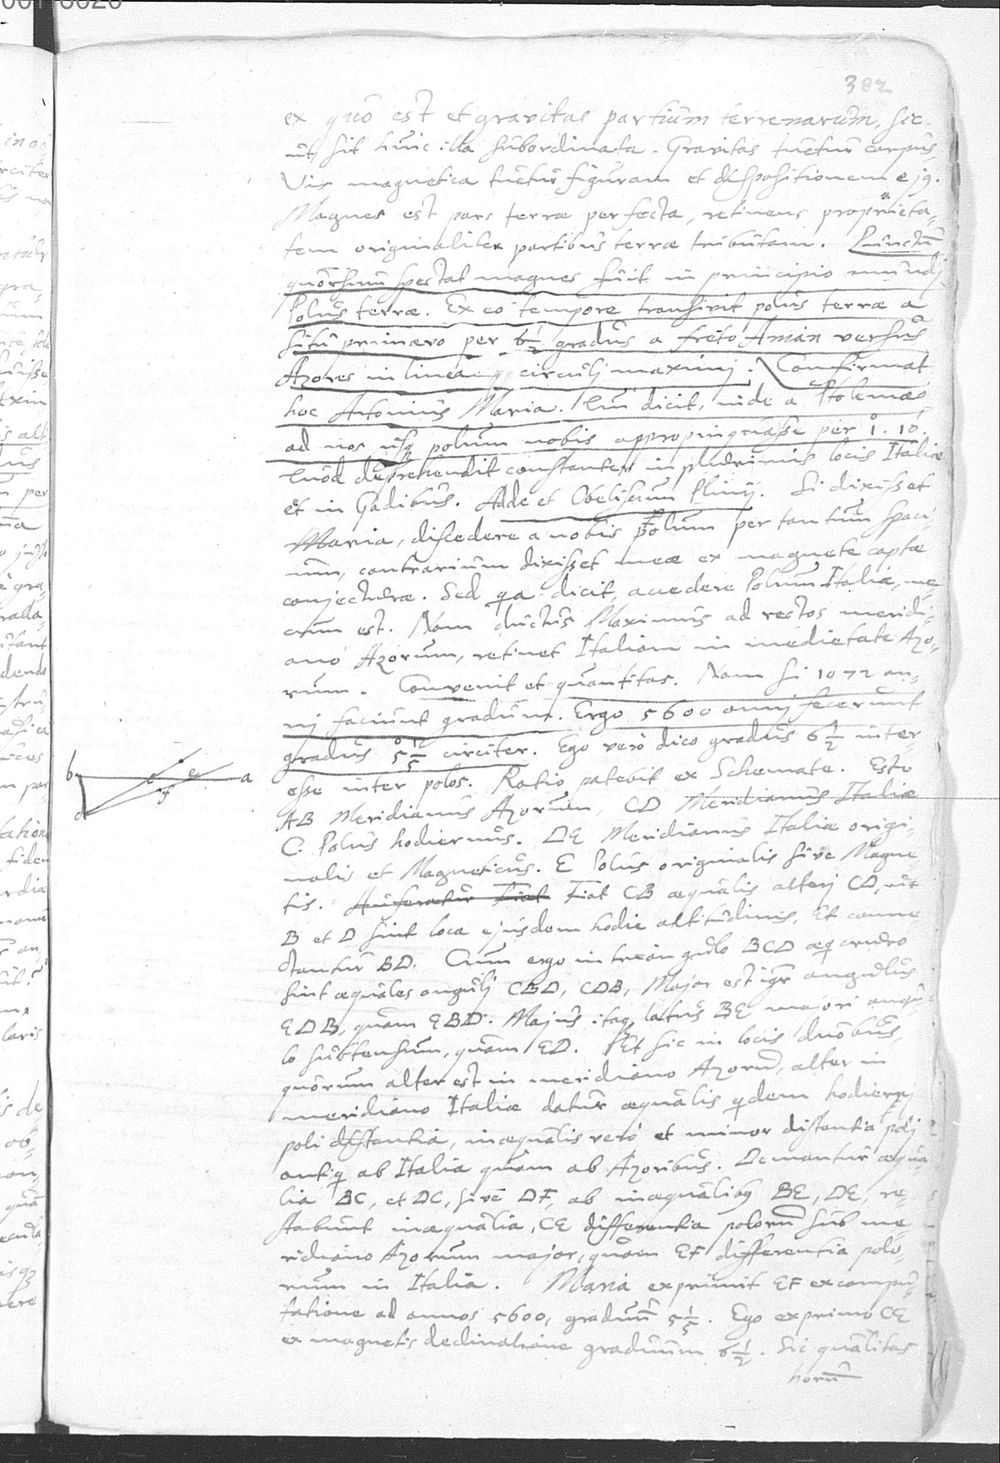 382
ex quo est et gravitas partium terrenarum, sic
ut sit huic illa subordinata. Gravitas tuetur corpus,
Vis magnetica tuetur figuram et dispositionem ejq.
Magnes est pars terræ perfecta, retinens proprieta-
tem originaliter partibus terræ tributam. Punctum
quorsum spectat magnes fuit in principio mundj
Polus terræ. Ex eo tempore transivit polus terræ a
situ primævo per 6 1/2 gradus a freto Anian versus
Azores in linea circulj maximj. Confirmat
hoc Antonius Maria. Qui dicit, inde a Ptolemæo
ad nos usq polum nobis appropinquasse per 1. 10.
Quod deprehendit constanter in plurimis locis Italiæ
et in Gadibus. Adde et Obeliscum Plinij. Si dixisset
Maria, discedere a nobis Polum per tantum spaci-
um, contrarium dixisset meæ ex magnete captæ
conjecturæ. Sed qa dicit, accedere Polum Italiæ, me
cum est. Nam ductus Maximus ad rectos meridi-
ano Azorum, retinet Italiam in medietate Azo-
rum. Convenit et quantitas. Nam si 1072 an-
nj faciunt gradum. Ergo 5600 annj fecerunt
gradus 5 circiter. Ego vero dico gradus 6 1/2 inter
esse inter polos. Ratio patebit ex Schemate. Esto
AB Meridianus Azorum, CD Meridianus Italiæ
C. Polus hodiernus. DE Meridianus Italiæ origi-
nalis et Magneticus. E Polus originalis sive Magne
tis. Fiat CB æqualis alterj CD, ut
B et D sint loca ejusdem hodie altitudinis. Et conne
ctantur BD. Cum ergo in triangulo BCD æqicruro
sint æquales angulj CBD, CDB, Major est igr angulus
EDB, quam EBD. Majus itaq latus BE majori angu-
lo subtensum, quam ED. Et sic in locis duobus,
quorum alter est in meridiano Azorum, alter in
meridiano Italiæ datur æqualis qdem hodiernj
poli distantia, inæqualis vero et minor distantia polj
antiq ab Italia quam ab Azoribus. Demantur æqua
lia BC, et DC, sive DF, ab inæqualibq BE, DE, re-
stabunt inæqualia, CE differentia polorum sub me
ridiano Azorum major, quam EF differentia polo-
rum in Italia. Maria exprimit EF ex compu-
tatione ad annos 5600, graduum 5 1/5. Ego exprimo CE
ex magnetis declinatione graduum 6 1/2. Sic qualitas
horum
b
c
e
a
f
d